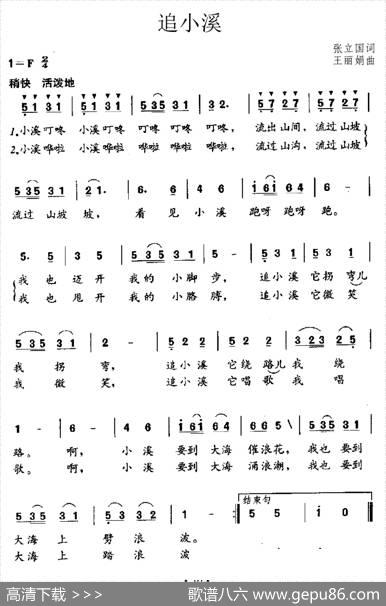 追小溪
张立国词
王丽娟曲
1=F 2/4
稍快 活泼地
5131 5131 | 535 31 | 32. | 5727 5727 |
1.小溪叮咚 小溪叮咚 叮咚叮咚 叮咚, 流出山间, 流过山坡
2.小溪哗啦 小溪哗啦 哗啦哗啦 哗啦, 流出山沟, 流过山坡
535 31 | 21. | 6. 6 | 4 6 | 161 64 | 5 - |
流过 山坡 坡, 看见小溪 跑呀跑呀 跑。
5. 5 | 3 5 | 535 31 | 2 - | 5 53 | 53 1 |
我也迈开 我的小脚步, 追小溪 它拐弯儿
我也甩开 我的小胳膊, 追小溪 它微笑
535 31 | 2 - | 5 53 | 53 1 | 323 25 |
我拐弯, 追小溪 它绕路儿我绕
我微笑, 追小溪 它唱歌我唱
1 - | 6 - | 4 6 | 161 64 | 665 5\ | 535 31 |
路。 啊, 小溪 要到大海 催浪花, 我也要到
歌。 啊, 小溪 要到大海 涌浪潮, 我也要到
535 31 | 5 53 | 2 - :| 5 5 | 1 0 ||
结束句
大海上 劈浪波。
大海上 踏浪波
高清下载 >>>
歌谱八六 www.gepu86.com